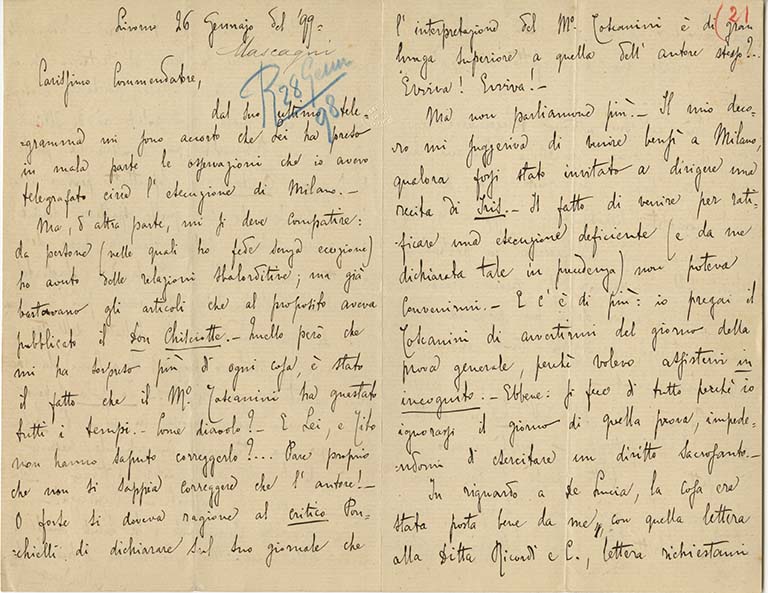 Livorno 26 Gennajo del '99=
Mascagni
R 28 Genn
98
Carissimo Commendatore,
dal suo ultimo tele-
=gramma mi sono accorto che Lei ha preso
in mala parte le osservazioni che io avevo
telegrafato circa l'esecuzione di Milano.—
Ma, d'altra parte, mi si deve compatire:
da persone (nelle quali ho fede senza eccezione)
ho avuto delle relazioni sbalorditive; ma già
bastavano gli articoli che al proposito aveva
pubblicato il Don Chisciotte.— Quello però che
mi ha sorpreso più d'ogni cosa, è stato
il fatto che il Mo. Toscanini ha guastato
tutti i tempi.— Come diavolo?— E Lei, e Tito
non hanno saputo correggerlo?... Pare proprio
che non si sappia correggere che l'autore!—
O forse si doveva ragione al critico Pon-
=chielli di dichiarare sul suo giornale che
(21
l'interpretazione del Mo. Toscanini è di gran
lunga superiore a quella dell'autore stesso?..
Evviva! Evviva!—
Ma non parliamone più.— Il mio deco-
=ro mi suggeriva di venire bensì a Milano,
qualora fossi stato invitato a dirigere una
recita di Iris.— Il fatto di venire per rati-
=ficare una esecuzione deficiente (e da me
dichiarata tale in precedenza) non poteva
convenirmi.— E c'è di più: io pregai il
Toscanini di avvertirmi del giorno della
prova generale, perché volevo assistervi in
incognito.— Ebbene: si fece di tutto perché io
ignorassi il giorno di quella prova, impede-
=ndomi d'esercitare un diritto sacrosanto.—
In riguardo a De Lucia, la cosa era
stata posta bene da me, con quella lettera
alla Ditta Ricordi e C., lettera richiestami